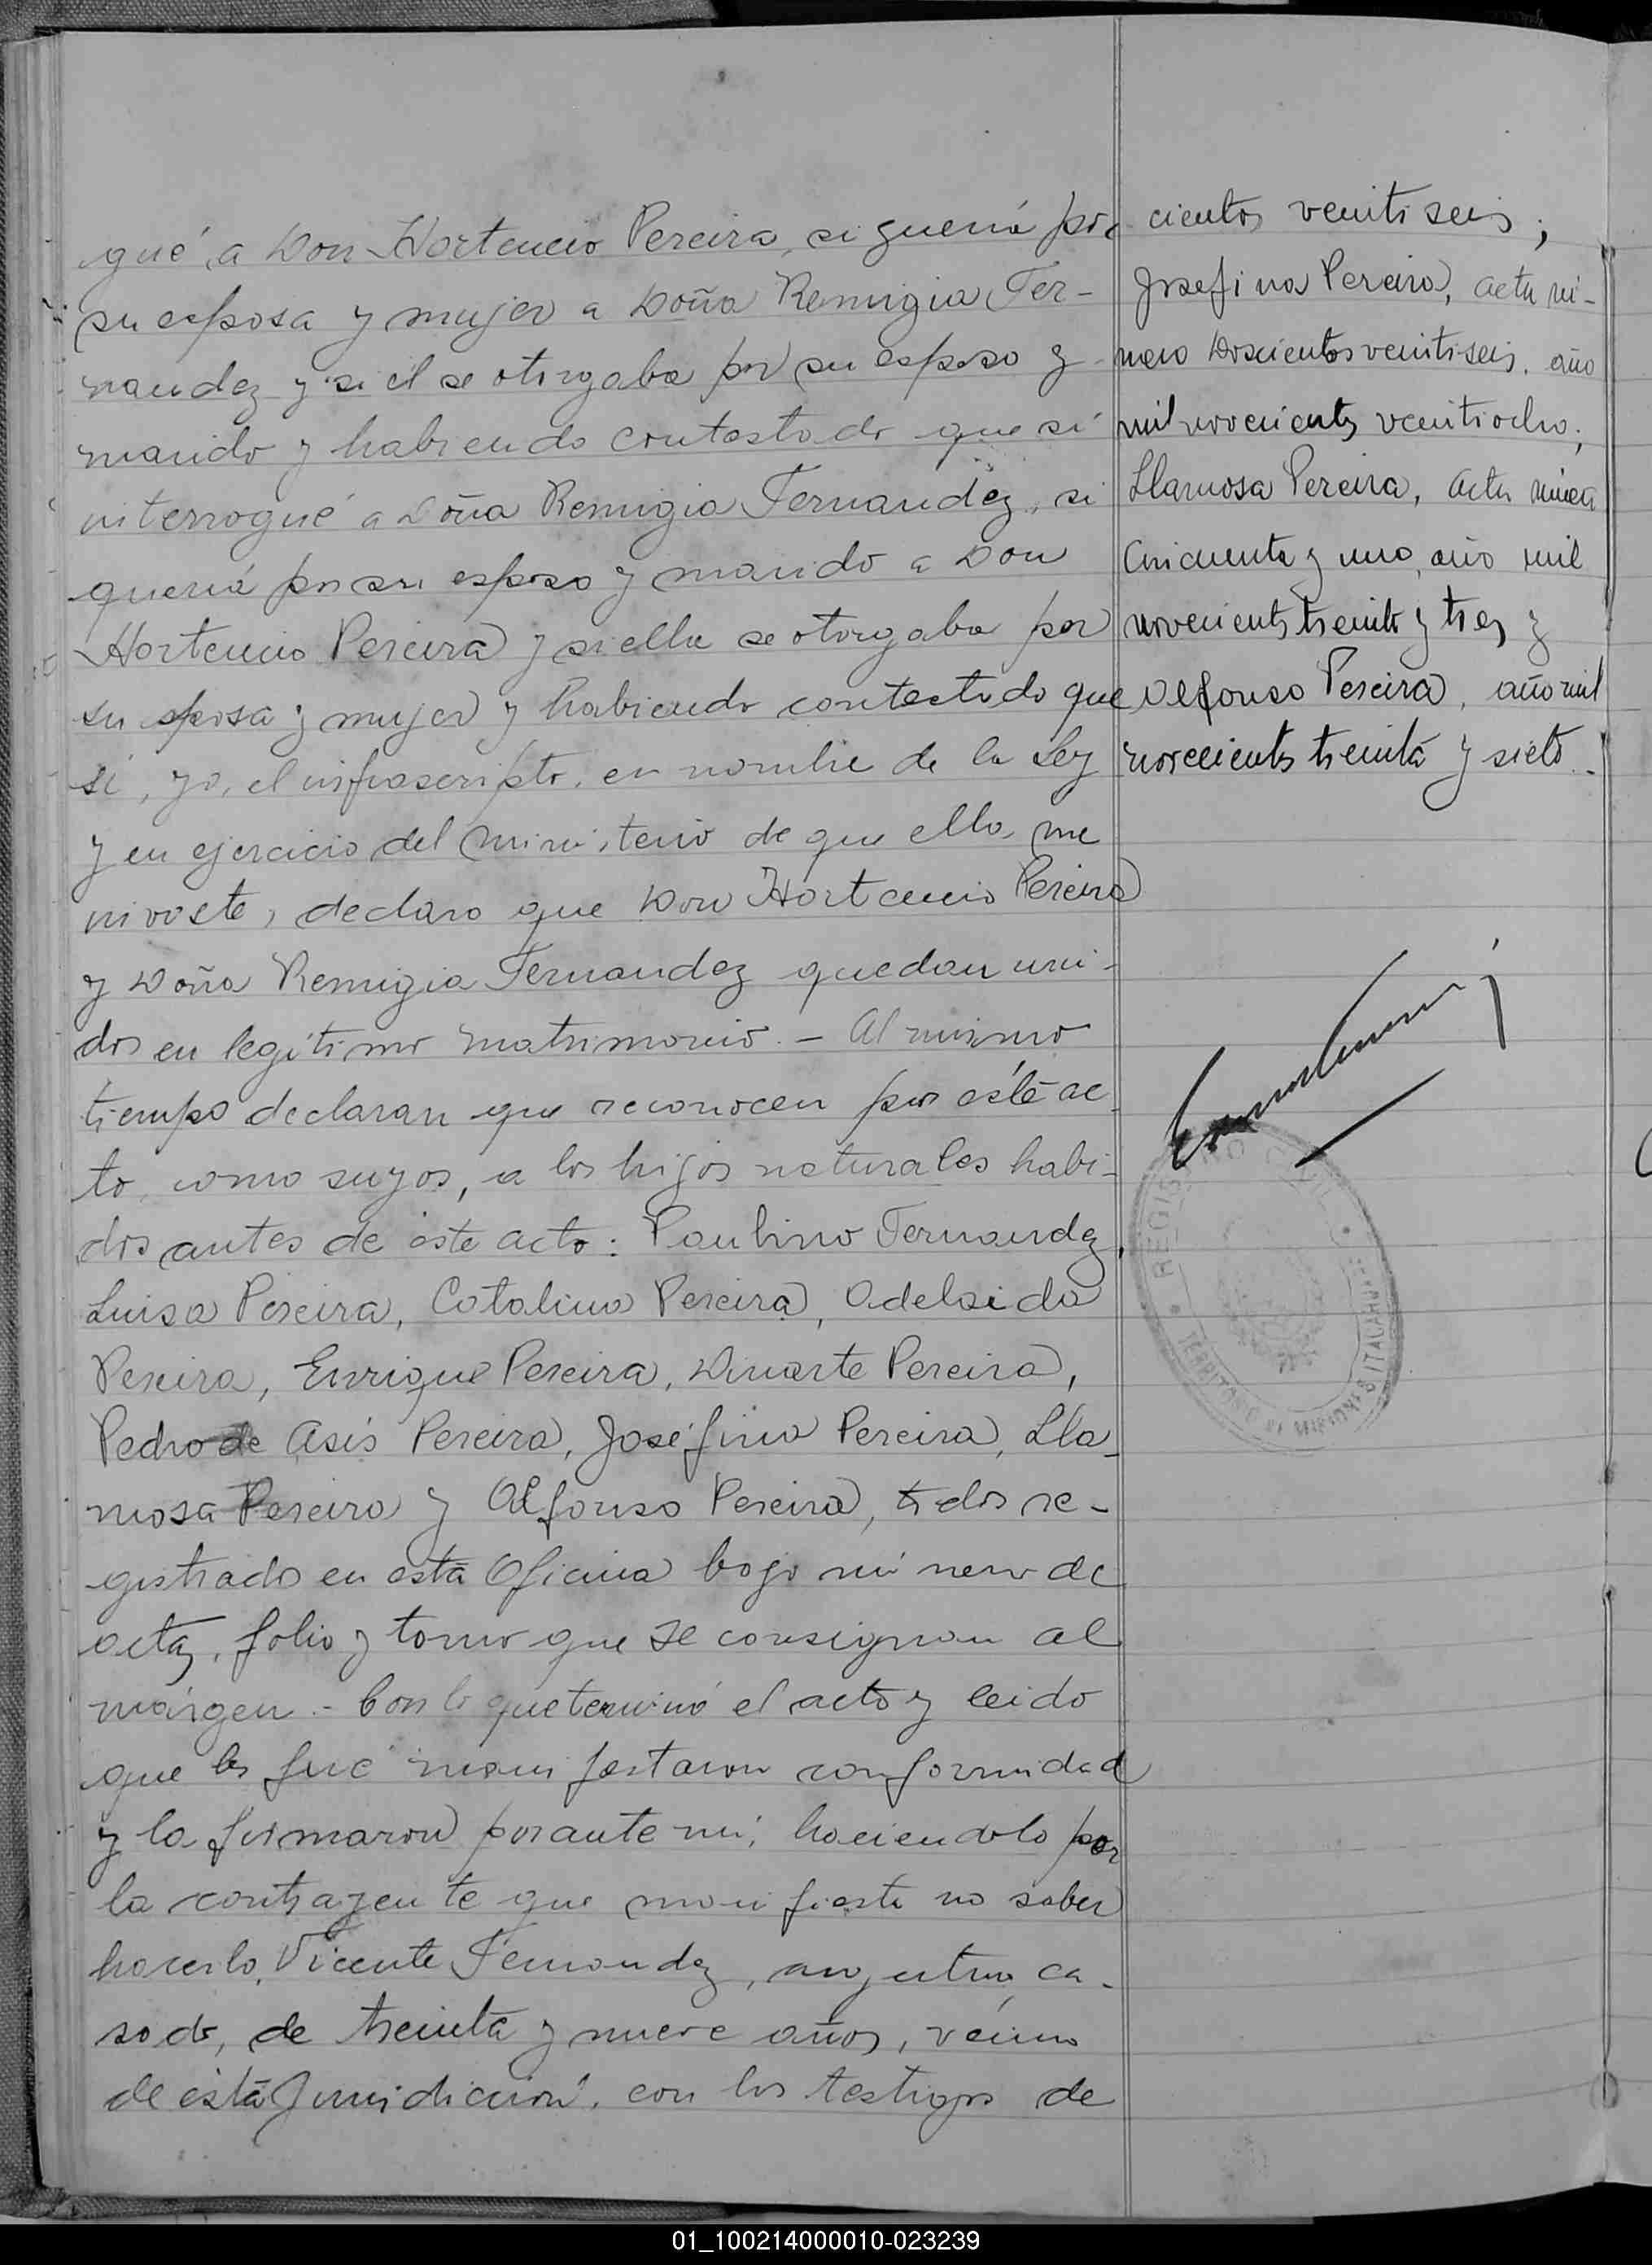 gué, a Don Hortencio Pereira, si quería por
su esposa y mujer a Doña Remigia Fer-
nandez y si él se otorgaba por su esposo y
marido y habiendo contestado que sí
interrogué a Doña Remigia Fernandez, si
quería por su esposo y marido a Don
Hortencio Pereira y si ella se otorgaba por
su esposa y mujer y habiendo contestado que
sí, yo, el infrascripto, en nombre de la Ley
y en ejercicio del ministerio de que ella me
inviste, declaro que Don Hortencio Pereira
y Doña Remigia Fernandez quedan uni-
dos en legítimo matrimonio. - Al mismo
tiempo declaran que reconocen por este ac-
to, como suyos, a los hijos naturales habi-
dos antes de este acto: Paulino Fernandez,
Luisa Pereira, Catalina Pereira, Adelaida
Pereira, Enrique Pereira, Duarte Pereira,
Pedro de Asís Pereira, Josefina Pereira, Lla-
mosa Pereira y Alfonso Pereira, todos re-
gistrados en esta Oficina bajo número de
acta, folio y tomo que se consignan al
márgen. - Con lo que terminó el acto y leido
que les fué manifestaron conformidad
y la firmaron por ante mi, haciendolo por
la contrayente que manifiesta no saber
hacerlo, Vicente Fernandez, argentino, ca-
sado, de treinta y nueve años, vecino
de esta Jurisdicción, con los testigos de
cientos veintiseis;
Josefina Pereira, acta nú-
mero Doscientos veintiseis, año
mil novecientos veintiocho;
Llamosa Pereira, acta número
Cincuenta y uno, año mil
novecientos treinta y tres y
Alfonso Pereira, año mil
novecientos treinta y siete.-
REGISTRO CIVIL
TERRITORIO DE MISIONES ITACARUARE
01_100214000010-023239